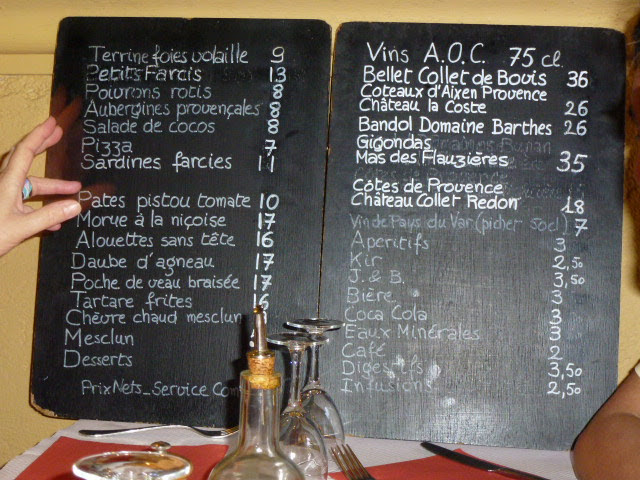 Terrine foies volaille 9
Petits Farcis 13
Poivrons rotis 8
Aubergines provençales 8
Salade de cocos 8
Pizza 7
Sardines farcies 11
Pates pistou tomate 10
Morue à la niçoise 17
Alouettes sans tête 16
Daube d'agneau 17
Poche de veau braisée 17
Tartare frites 16
Chèvre chaud mesclun
Mesclun
Desserts
Prix Nets_Service
Vins A.O.C. 75 cl.
Bellet Collet de Bovis 36
Coteaux d'Aix en Provence
Château la Coste 26
Bandol Domaine Barthes 26
Gigondas
Mas des Flauzières 35
Côtes de Provence
Château Collet Redon 18
Vin de Pays du Var (pichet 50cl) 7
Aperitifs 3
Kir 2,50
J. & B. 3,50
Bière 3
Coca Cola 3
Eaux Minérales 3
Café 2
Digestifs 3,50
Infusions 2,50